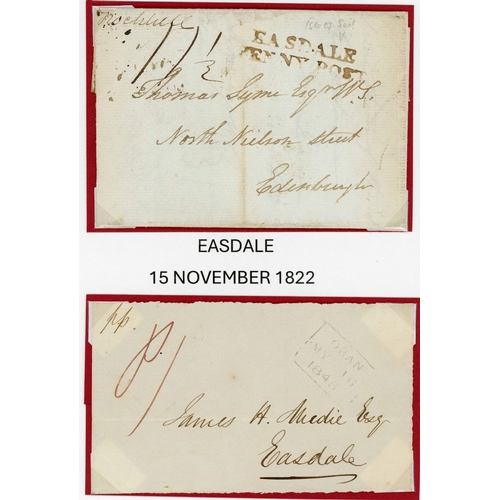 Isle of Seil
EASDALE
PENNY POST
1/2
Thomas Syme Esqr W.S.
North Nielson Street
Edinburgh
EASDALE
15 NOVEMBER 1822
pp.
OBAN
MY 16
184
James H. Medie Esq
Easdale